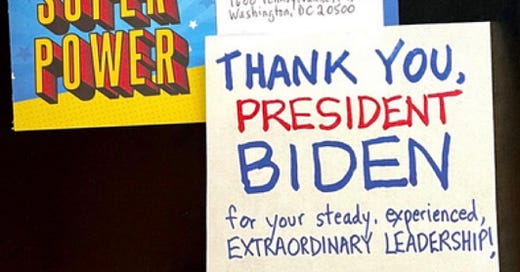 SUPER
POWER
1600 Pennsylvania
Washington, DC 20500
THANK YOU,
PRESIDENT
BIDEN
for your steady, experienced,
EXTRAORDINARY LEADERSHIP!